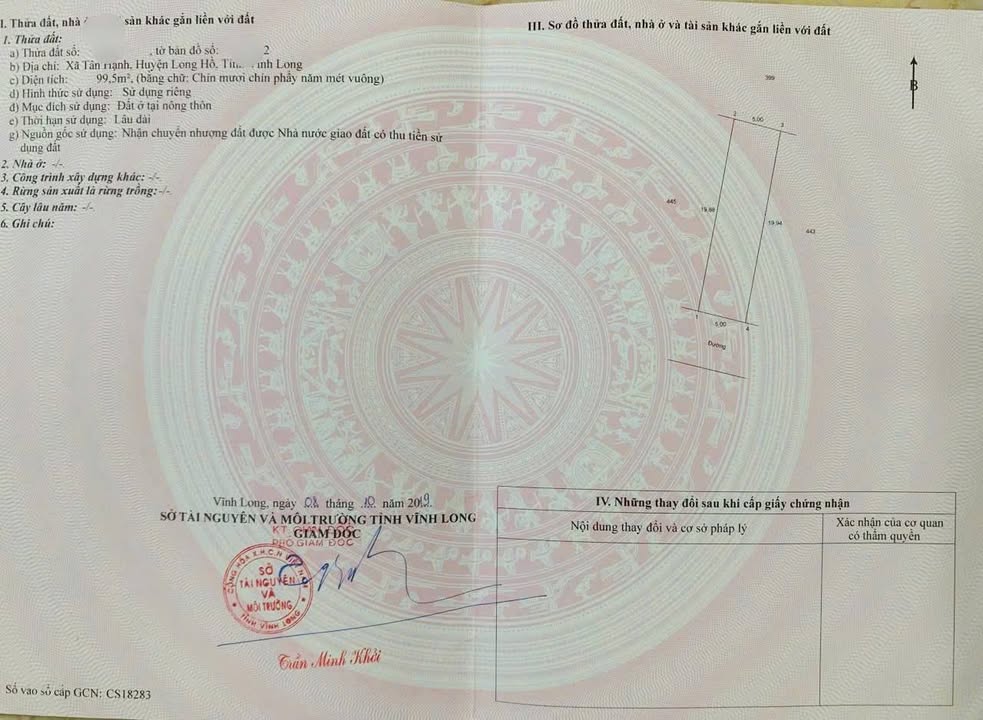 I. Thửa đất, nhà sản khác gắn liền với đất
1. Thửa đất:
a) Thửa đất số: , tờ bản đồ số: 2
b) Địa chỉ: Xã Tân Hạnh, Huyện Long Hồ, Long
c) Diện tích: 99,5m², (bằng chữ: Chín mươi chín phẩy năm mét vuông)
d) Hình thức sử dụng: Sử dụng riêng
đ) Mục đích sử dụng: Đất ở tại nông thôn
e) Thời hạn sử dụng: Lâu dài
g) Nguồn gốc sử dụng: Nhận chuyển nhượng đất được Nhà nước giao đất có thu tiền sử
dụng đất
2. Nhà ở: -/-
3. Công trình xây dựng khác: -/-
4. Rừng sản xuất là rừng trồng: -/-
5. Cây lâu năm: -/-
6. Ghi chú:
Vĩnh Long, ngày 08 tháng 10 năm 2019
SỞ TÀI NGUYÊN VÀ MÔI TRƯỜNG TỈNH VĨNH LONG
KT. GIÁM ĐỐC
GIÁM ĐỐC
PHÓ GIÁM ĐỐC
CỘNG HÒA X.H.C.N VIỆT NAM
SỞ
TÀI NGUYÊN
VÀ
MÔI TRƯỜNG
TỈNH VĨNH LONG
Trần Minh Khởi
Số vào sổ cấp GCN: CS18283
III. Sơ đồ thửa đất, nhà ở và tài sản khác gắn liền với đất
B
399
2
5,00
3
445
19,88
19,94
443
1
5,00
4
Đường
IV. Những thay đổi sau khi cấp giấy chứng nhận
Nội dung thay đổi và cơ sở pháp lý
Xác nhận của cơ quan
có thẩm quyền